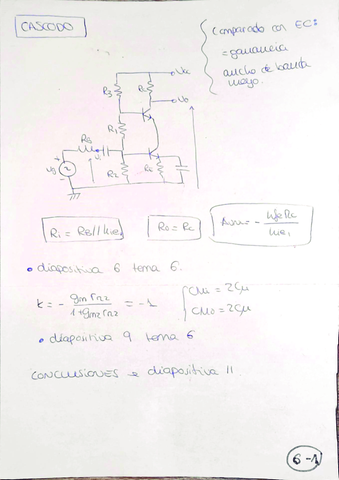 CASCODO
Comparado con EC:
= ganancia
ancho de banda
mayor.
Vcc
R3
Rc
Vo
R1
Rs
Vs
R2
RE
Ri = RB//hie1
Ro = Rc
Avm = - hfe Rc / hie1
• diapositiva 6 tema 6.
K = - gm rπ2 / 1 + gm2 rπ2 = -1
CMi = 2Cμ
CMo = 2Cμ
• diapositiva 9 tema 6
CONCLUSIONES → diapositiva 11.
6-1